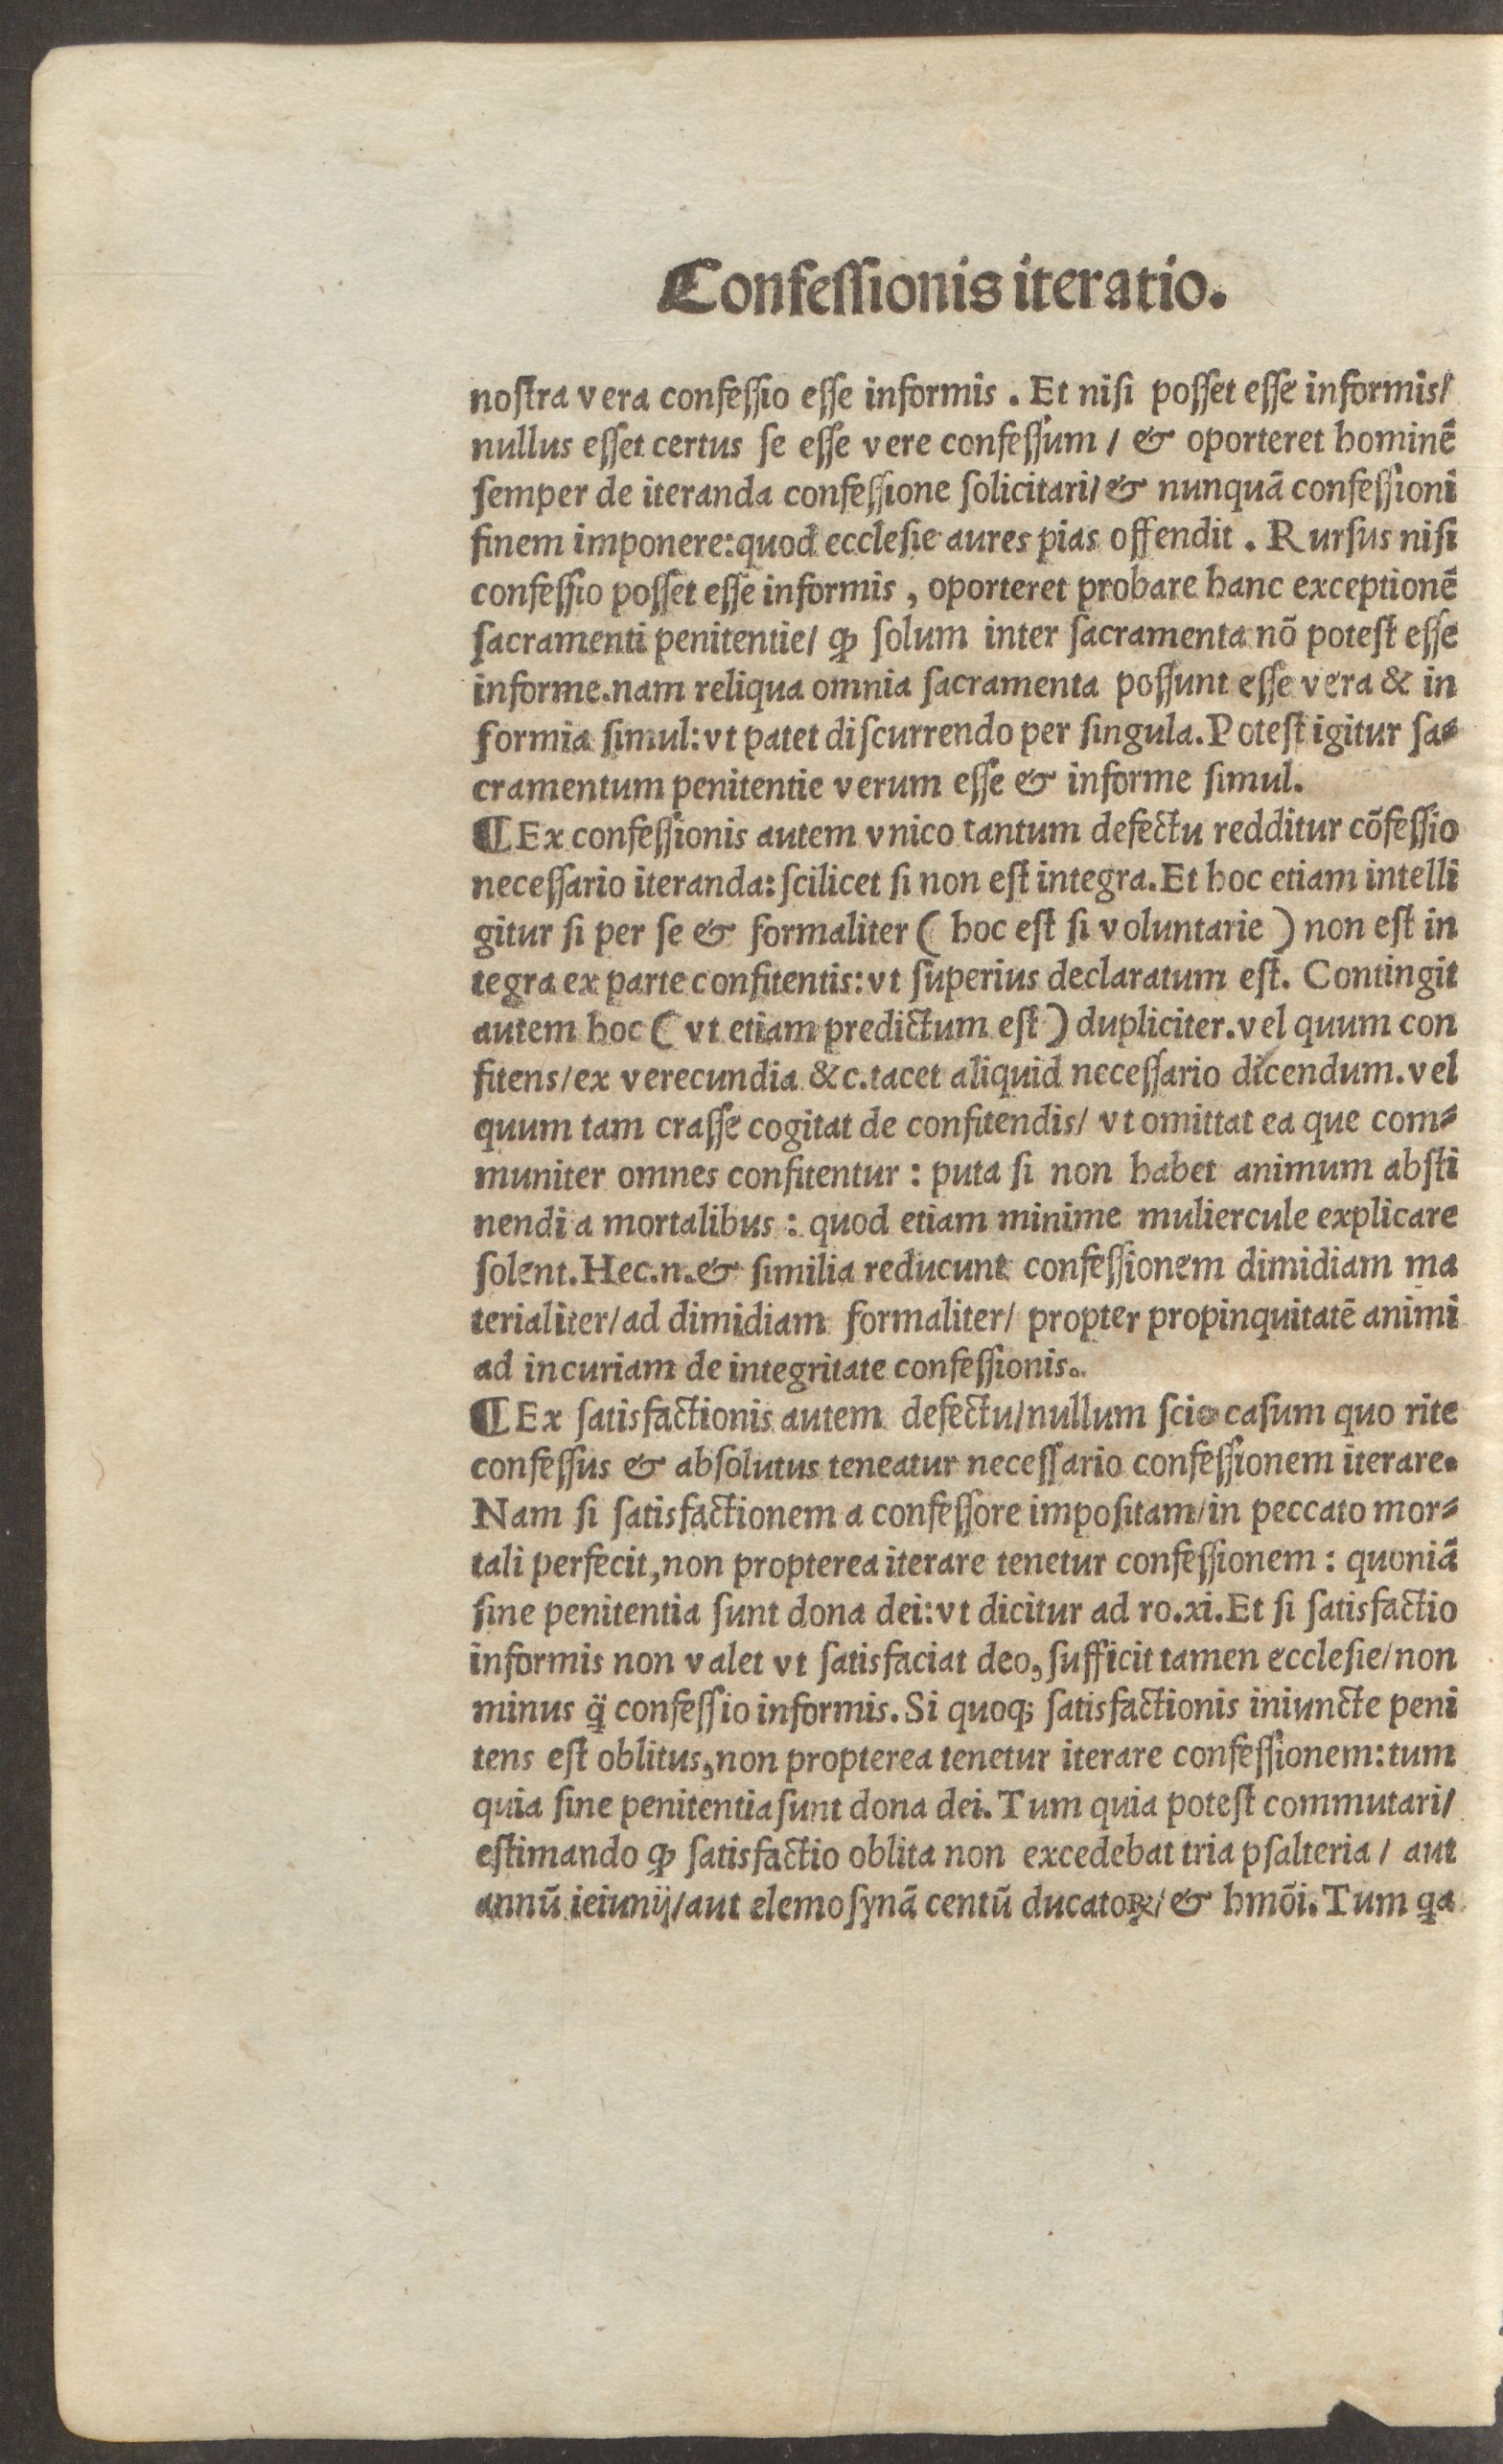 Confeſſionis iteratio.
noſtra vera confeſſio eſſe informis. Et niſi poſſet eſſe informis/
nullus eſſet certus ſe eſſe vere confeſſum / & oporteret hominē
ſemper de iteranda confeſſione ſolicitari/ & nunquā confeſſioni
finem imponere: quod eccleſie aures pias offendit. Rurſus niſi
confeſſio poſſet eſſe informis, oporteret probare hanc exceptionē
ſacramenti penitentie/ ꝙ ſolum inter ſacramenta nō poteſt eſſe
informe. nam reliqua omnia ſacramenta poſſunt eſſe vera & in
formia ſimul: vt patet diſcurrendo per ſingula. Poteſt igitur ſa⸗
cramentum penitentie verum eſſe & informe ſimul.
¶Ex confeſſionis autem vnico tantum defectu redditur cōfeſſio
neceſſario iteranda: ſcilicet ſi non eſt integra. Et hoc etiam intelli
gitur ſi per ſe & formaliter ( hoc eſt ſi voluntarie ) non eſt in
tegra ex parte confitentis: vt ſuperius declaratum eſt. Contingit
autem hoc ( vt etiam predictum eſt ) dupliciter. vel quum con
fitens/ ex verecundia &c. tacet aliquid neceſſario dicendum. vel
quum tam craſſe cogitat de confitendis/ vt omittat ea que com⸗
muniter omnes confitentur : puta ſi non habet animum abſti
nendi a mortalibus : quod etiam minime muliercule explicare
ſolent. Hec .n. & ſimilia reducunt confeſſionem dimidiam ma
terialiter/ ad dimidiam formaliter/ propter propinquitatē animi
ad incuriam de integritate confeſſionis.
¶Ex ſatisfactionis autem defectu/ nullum ſcio caſum quo rite
confeſſus & abſolutus teneatur neceſſario confeſſionem iterare.
Nam ſi ſatisfactionem a confeſſore impoſitam/ in peccato mor⸗
tali perfecit, non propterea iterare tenetur confeſſionem : quoniā
ſine penitentia ſunt dona dei: vt dicitur ad ro. xi. Et ſi ſatisfactio
informis non valet vt ſatisfaciat deo, ſufficit tamen eccleſie/ non
minus q̈ confeſſio informis. Si quoq; ſatisfactionis iniuncte peni
tens eſt oblitus, non propterea tenetur iterare confeſſionem: tum
quia ſine penitentia ſunt dona dei. Tum quia poteſt commutari/
eſtimando ꝙ ſatisfactio oblita non excedebat tria pſalteria / aut
annū ieiunij/ aut elemoſynā centū ducatoꝝ/ & hmōi. Tum qa